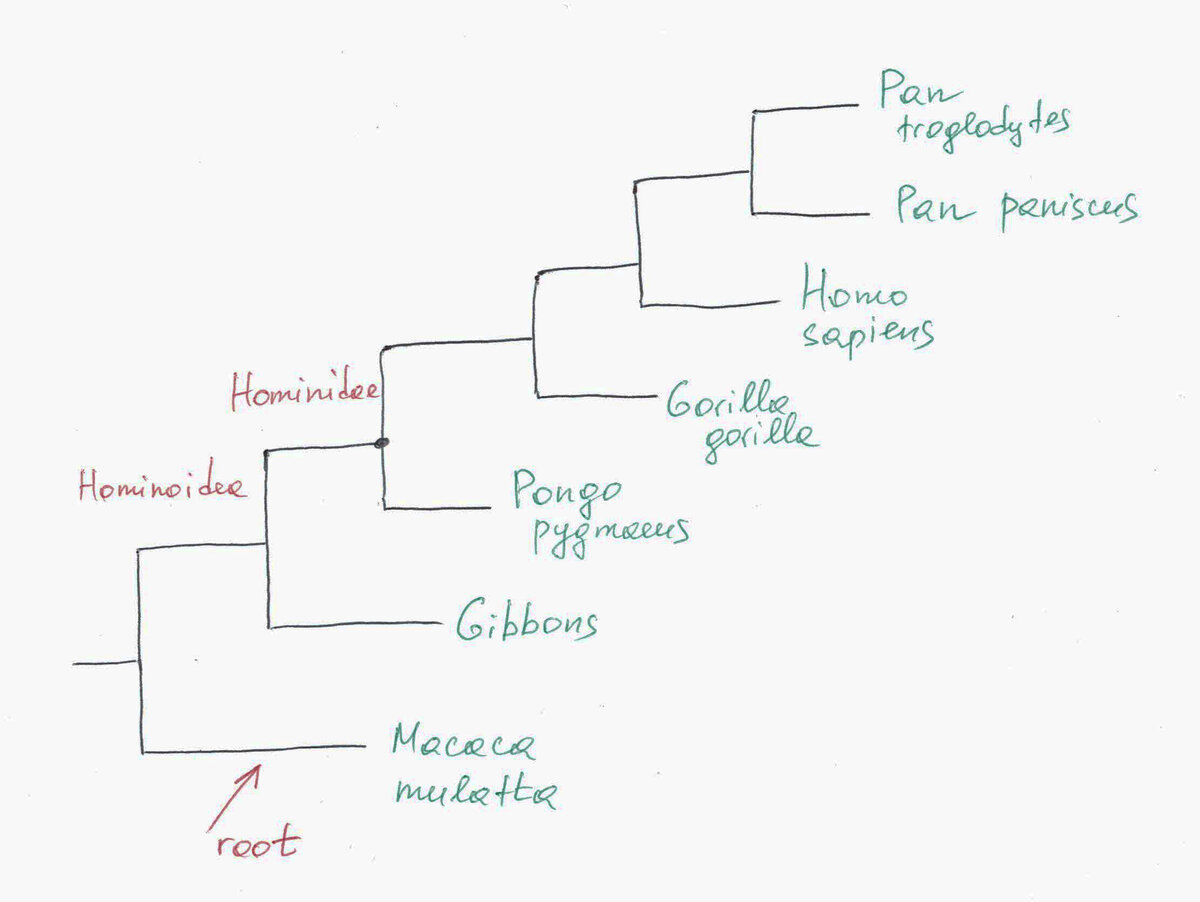 Pan
troglodytes
Pan paniscus
Homo
sapiens
Hominidae
Gorilla
gorilla
Hominoidea
Pongo
pygmaeus
Gibbons
Macaca
mulatta
root